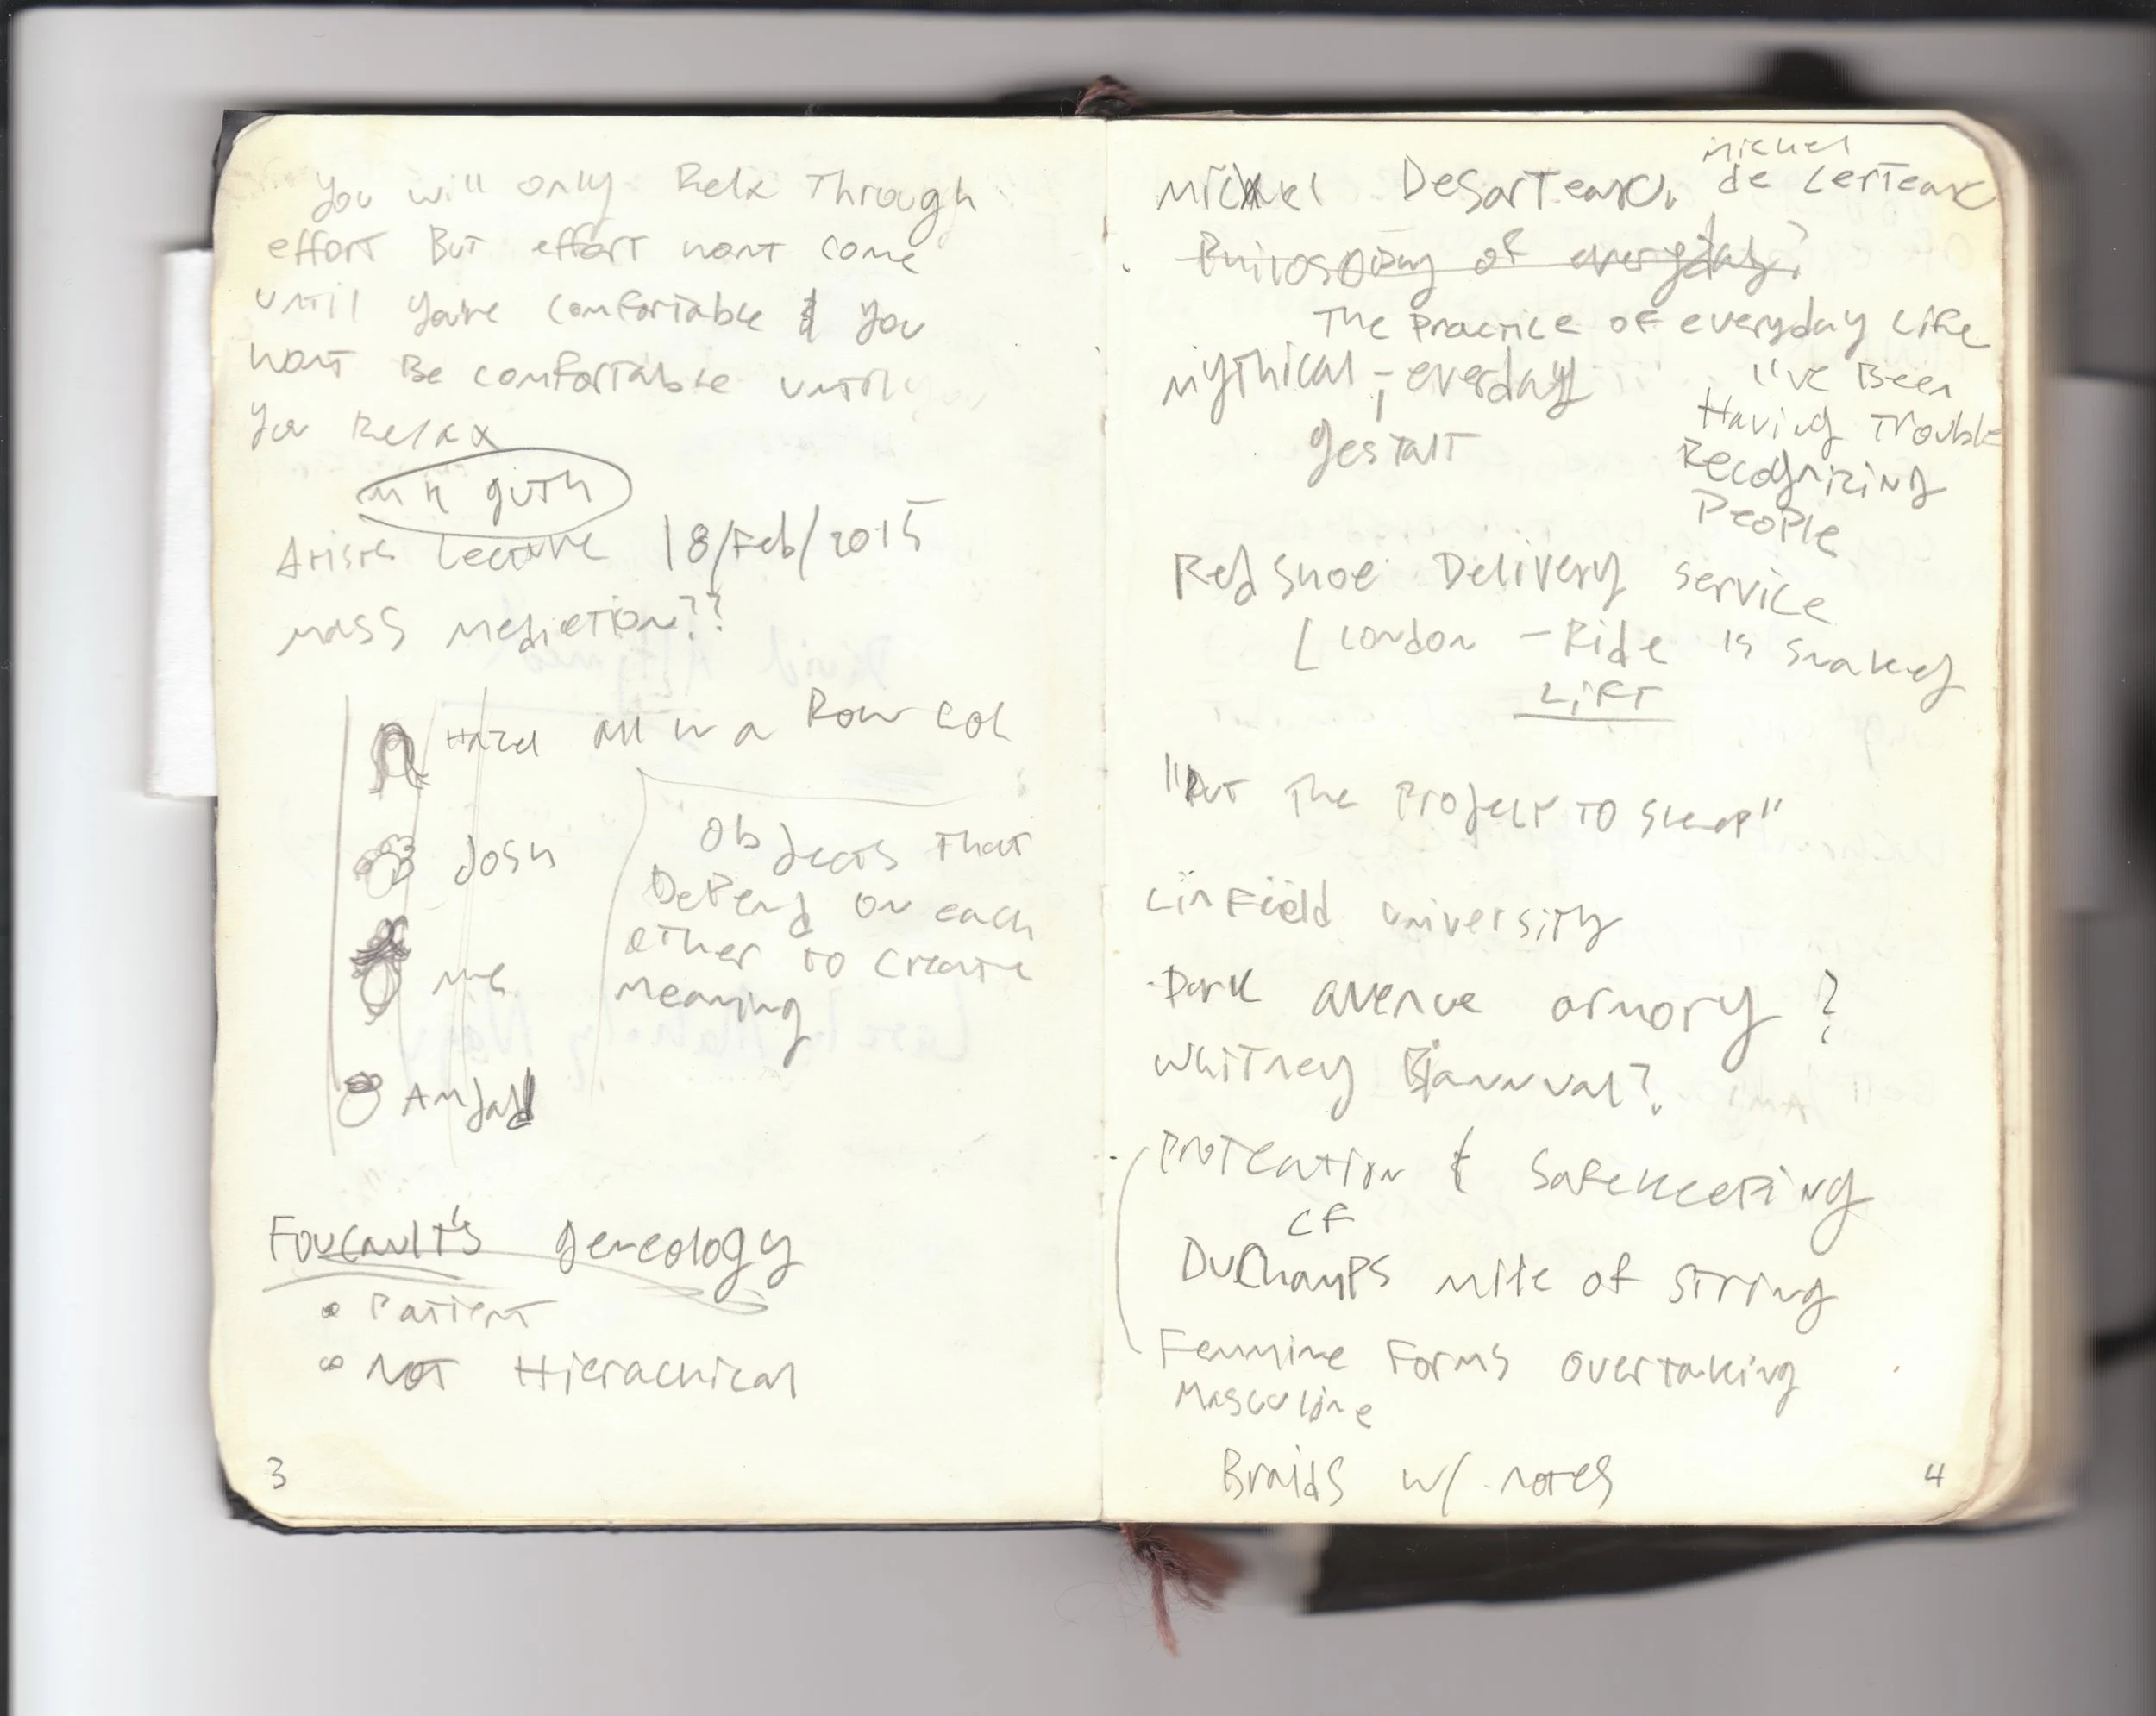 You will only Relx Through
effort But effort wont come
until you're comfortable & you
wont Be comfortable until
you Relax
MK guth
Artist Lecture 18/Feb/2015
mass mediation??
Hazel all in a Row LOL
Josh
me
Amjad
Objects That
Depend on each
other to create
meaning
Foucault's geneology
• Patient
• NOT Hierachical
3
Michel DeSarteaux. Michel
de Certeaux
Philosophy of everyday?
The Practice of everyday Life
mythical - everday
gestalt
"I've Been
Having Trouble
Recognizing
People
Red Shoe Delivery service
[London - Ride is Snakey
LIFT
"Put The Project TO Sleep"
Linfield university
Park avenue armory ?
Whitney Biannual?
Protection & Safekeeping
CF
Duchamps mile of String
Feminine Forms overtaking
Masculine
Braids w/ notes
4